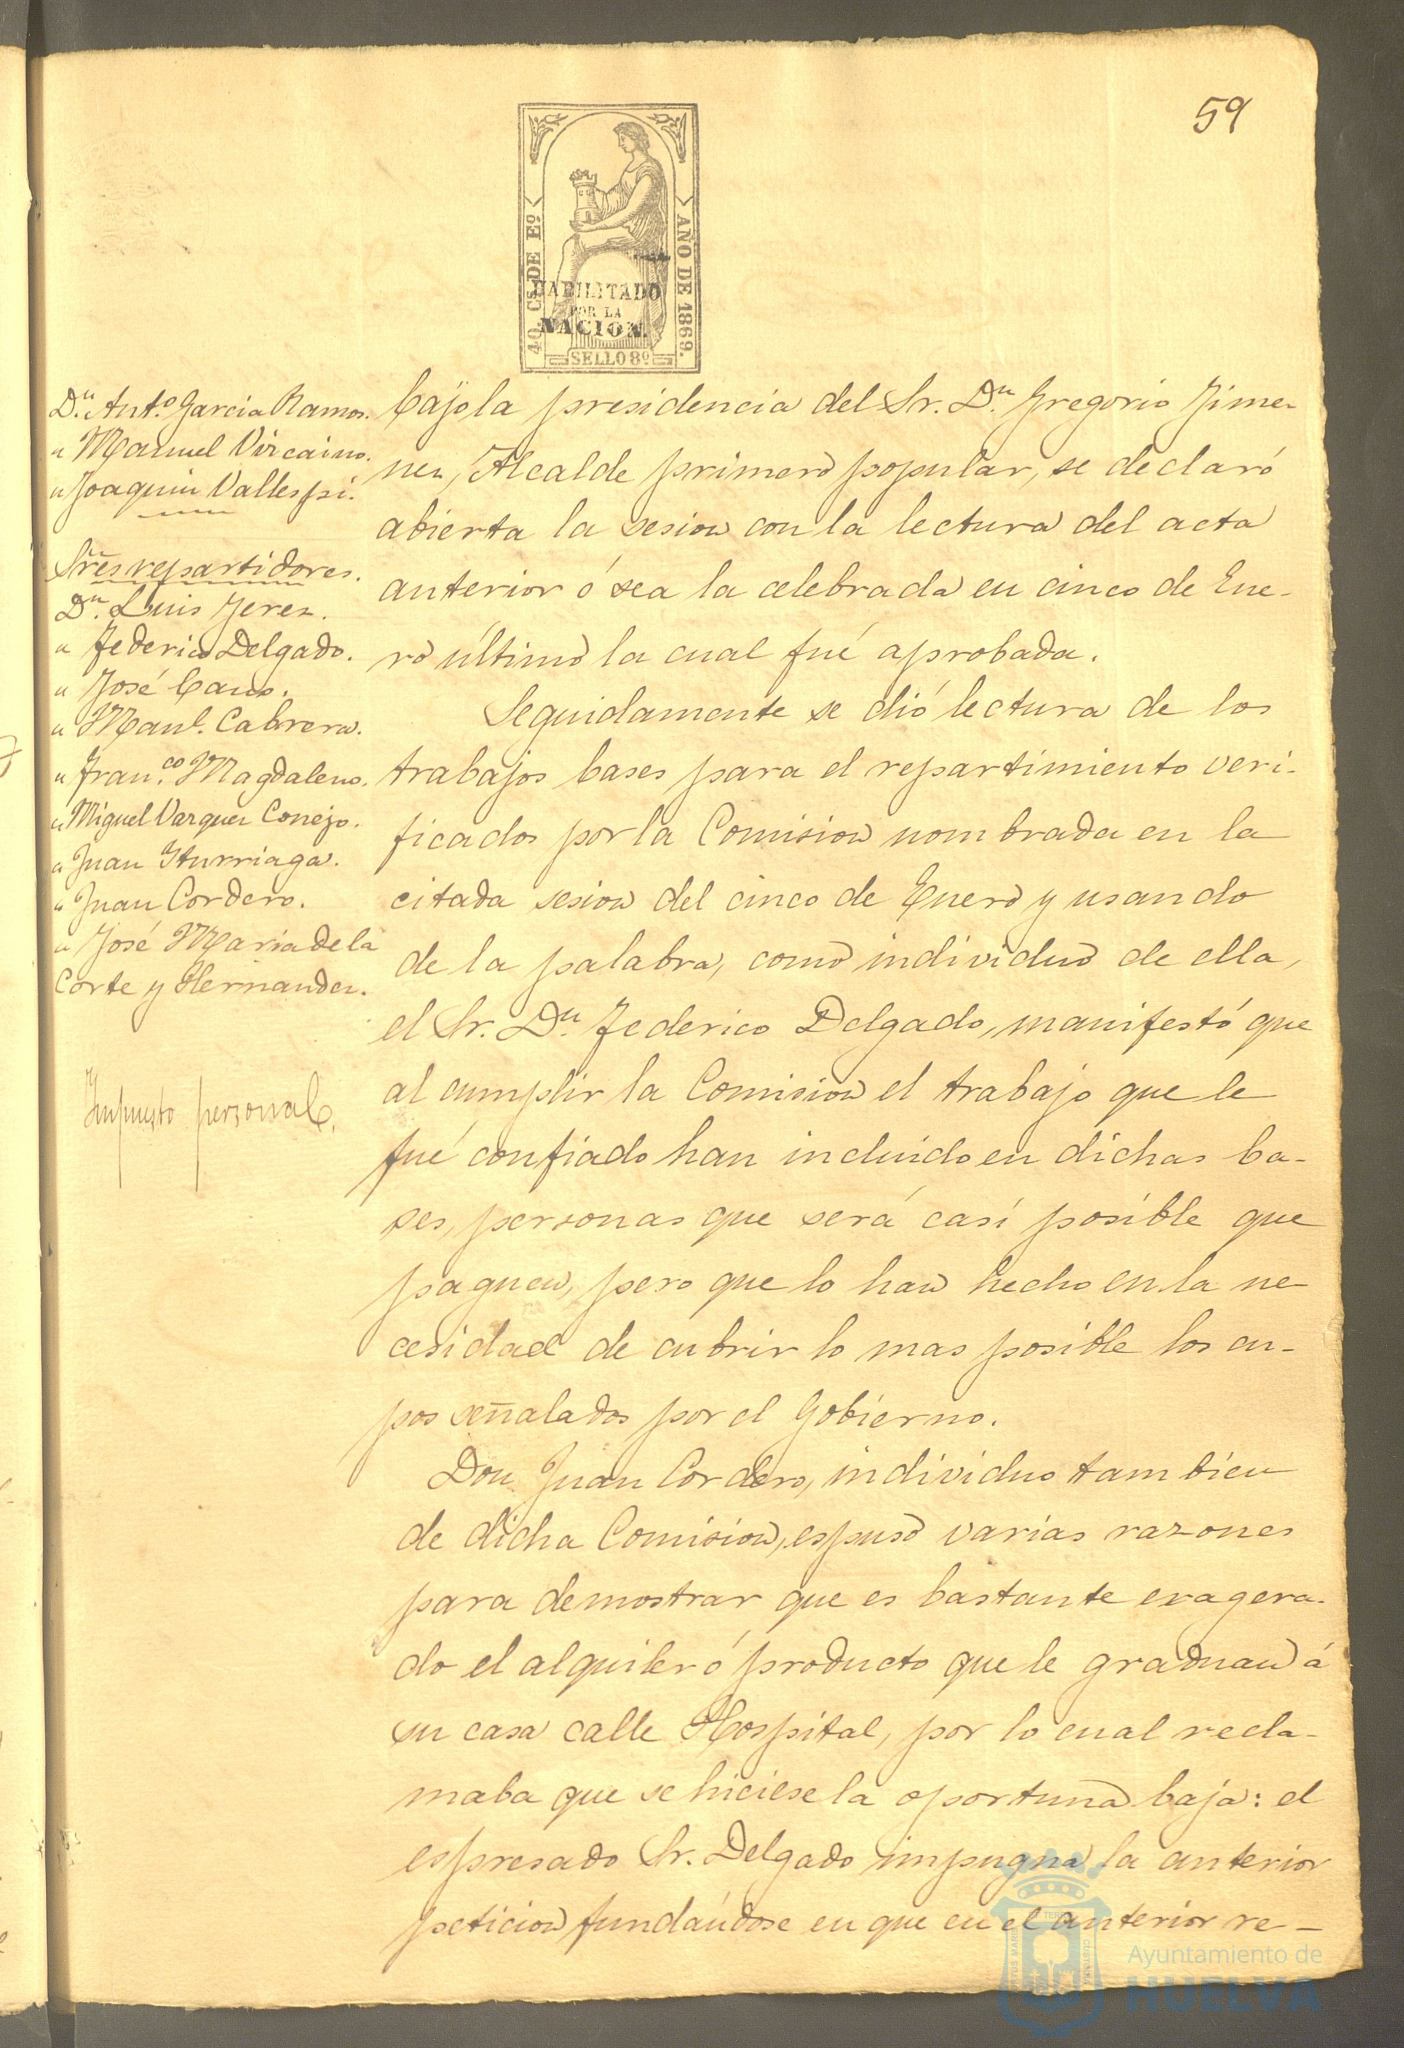 59
40 CS. DE Eº
AÑO DE 1869.
HABILITADO
POR LA
NACION.
SELLO 8º
D.n Ant.o Garcia Ramos.
" Manuel Vizcaino.
" Joaquin Vallespi.
Sres repartidores.
D.n Luis Jerez.
" Federico Delgado.
" José Cano.
" Manl. Cabrera.
" Fran.co Magdaleno.
" Miguel Vazquez Conejo.
" Juan Iturriaga.
" Juan Cordero.
" José Maria de la
Corte y Hernandez.
Impuesto personal.
bajo la presidencia del Sr. D.n Gregorio Jime-
nez, Alcalde primero popular, se declaró
abierta la sesion con la lectura del acta
anterior ó sea la celebrada en cinco de Ene-
ro último la cual fué aprobada.
Seguidamente se dió lectura de los
trabajos bases para el repartimiento veri-
ficados por la Comision nombrada en la
citada sesion del cinco de Enero y usando
de la palabra, como individuo de ella,
el Sr. D.n Federico Delgado, manifestó que
al cumplir la Comision el trabajo que le
fué confiado han incluido en dichas ba-
ses, personas que será casi posible que
paguen, pero que lo han hecho en la ne-
cesidad de cubrir lo mas posible los cu-
pos señalados por el Gobierno.
Don Juan Cordero, individuo tambien
de dicha Comision, espuso varias razones
para demostrar que es bastante exagera-
do el alquiler ó producto que le graduan á
su casa calle Hospital, por lo cual recla-
maba que se hiciese la oportuna baja: el
espresado Sr. Delgado impugna la anterior
peticion fundándose en que en el anterior re-
Ayuntamiento de
HUELVA